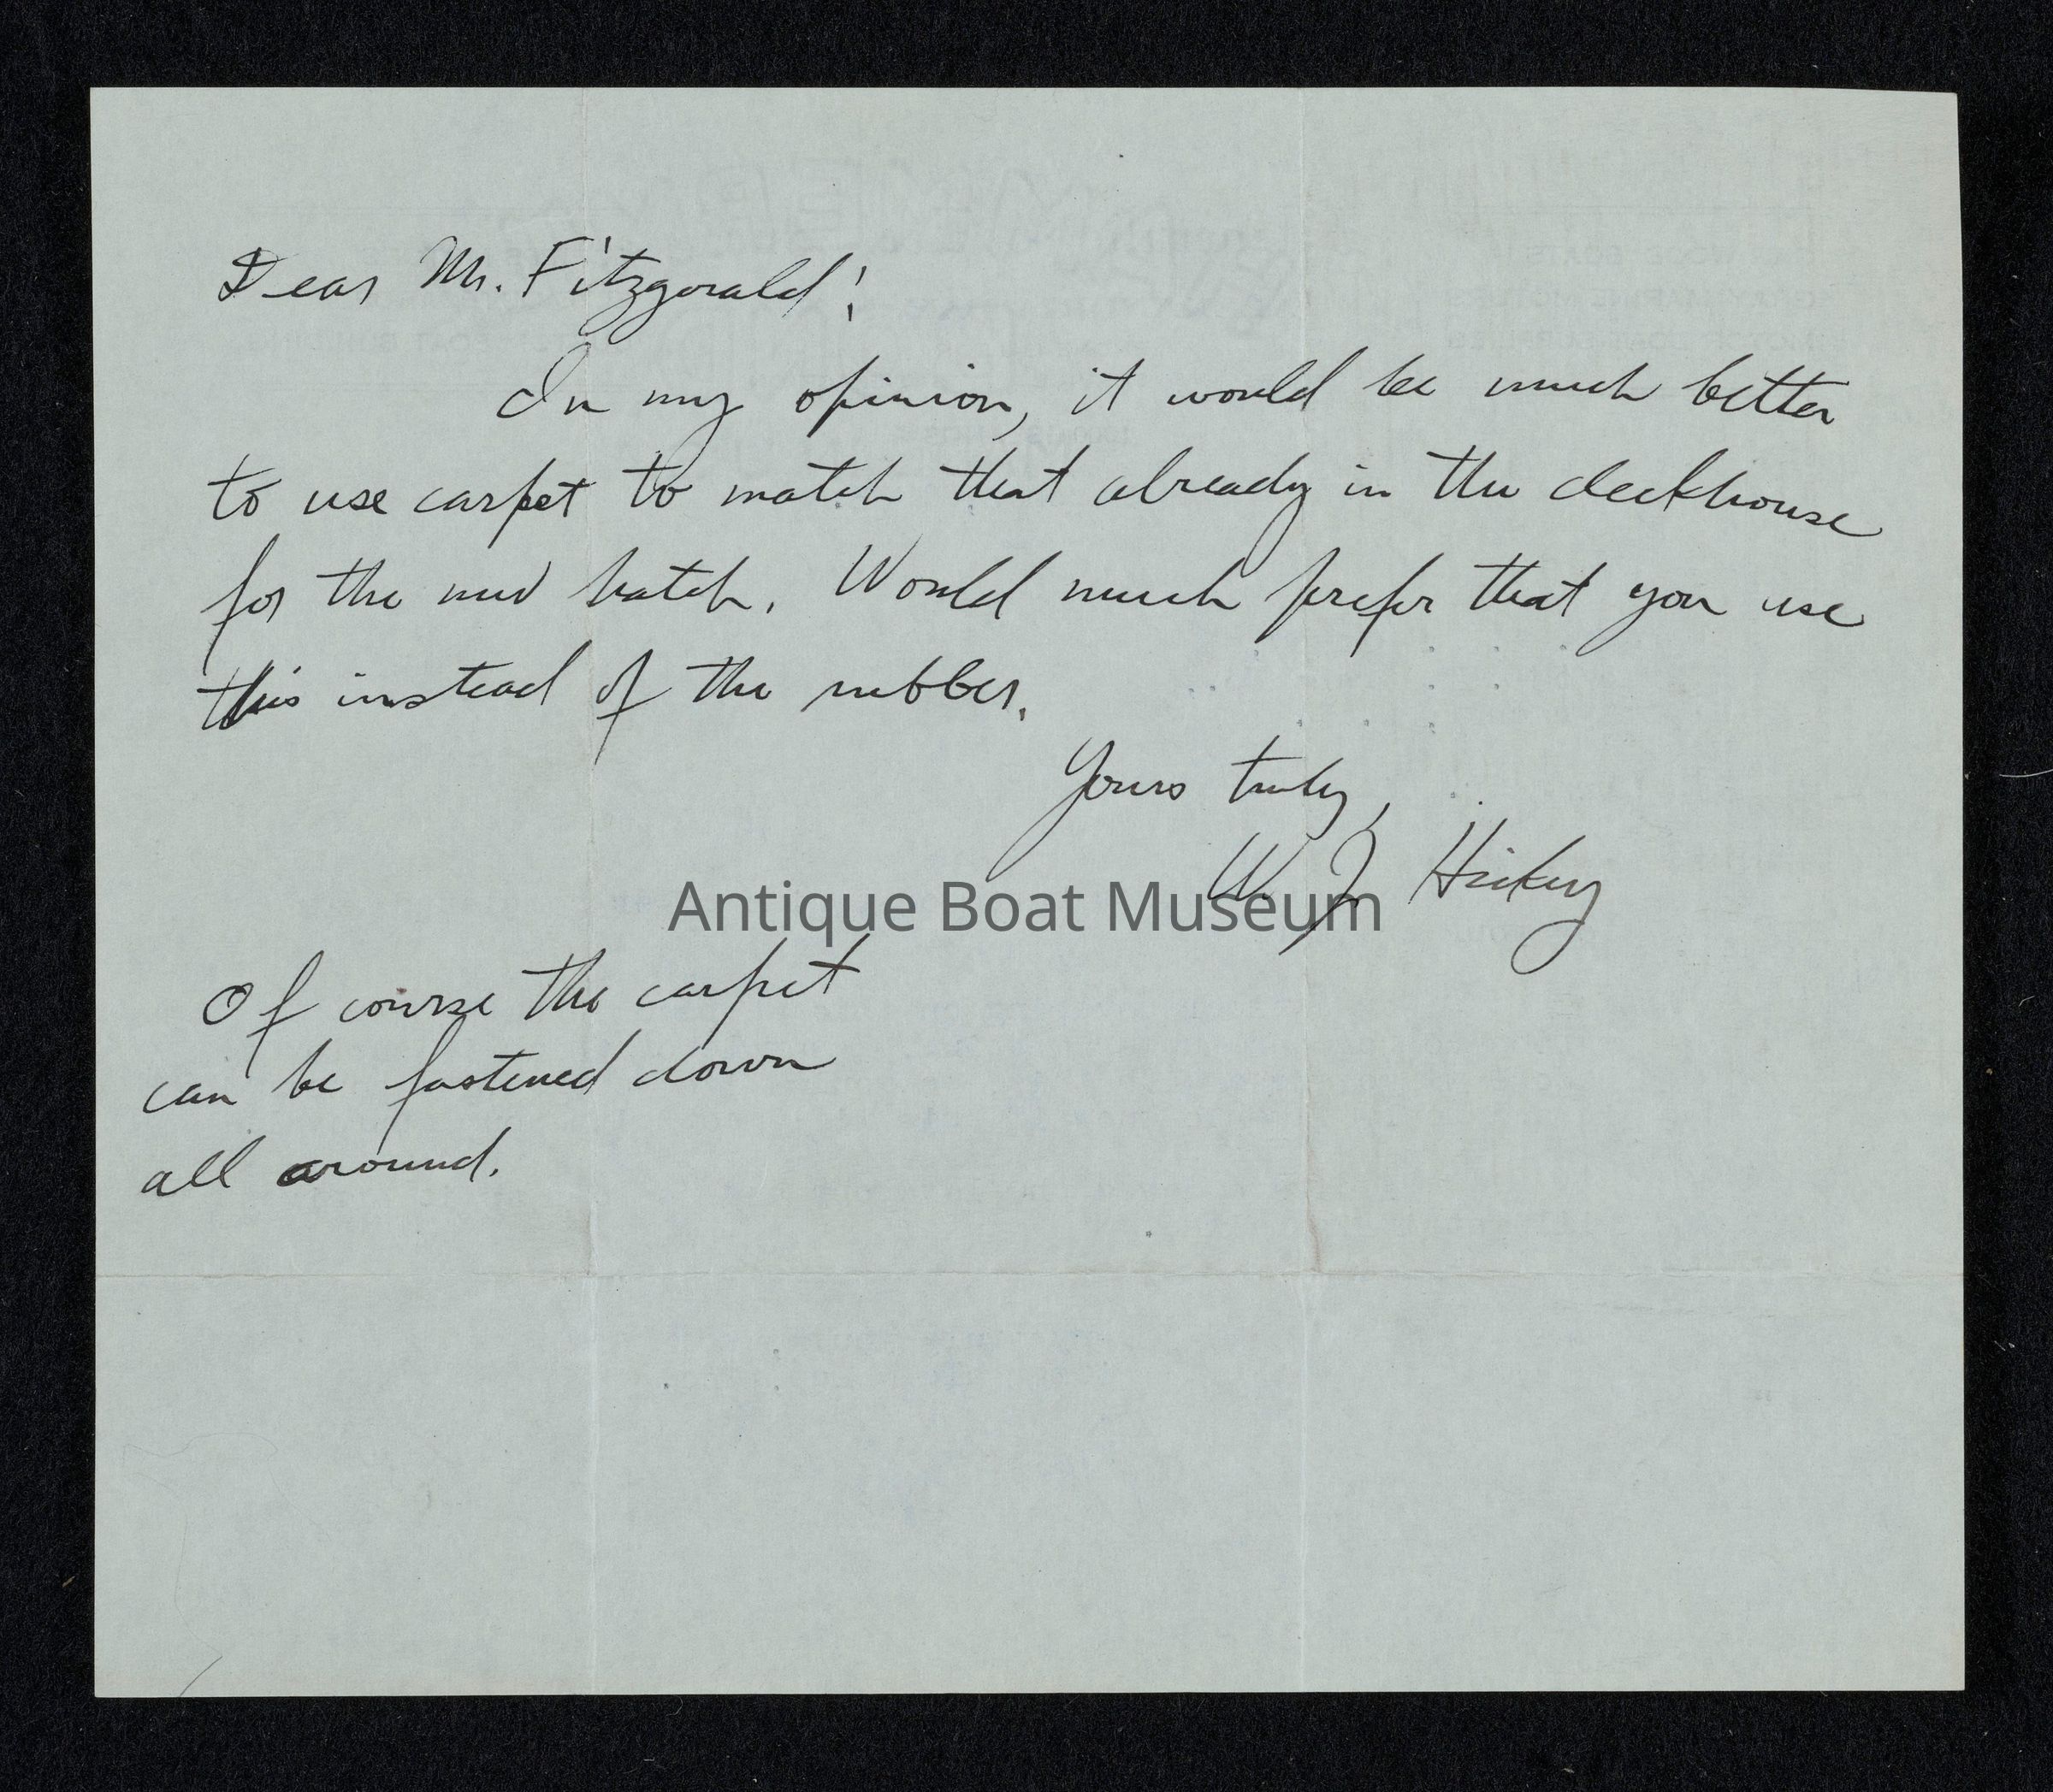 Dear Mr. Fitzgerald:
In my opinion, it would be much better
to use carpet to match that already in the deckhouse
for the new hatch. Would much prefer that you use
this instead of the rubber.
Yours truly,
W. J. Hickey
Antique Boat Museum
Of course the carpet
can be fastened down
all around.